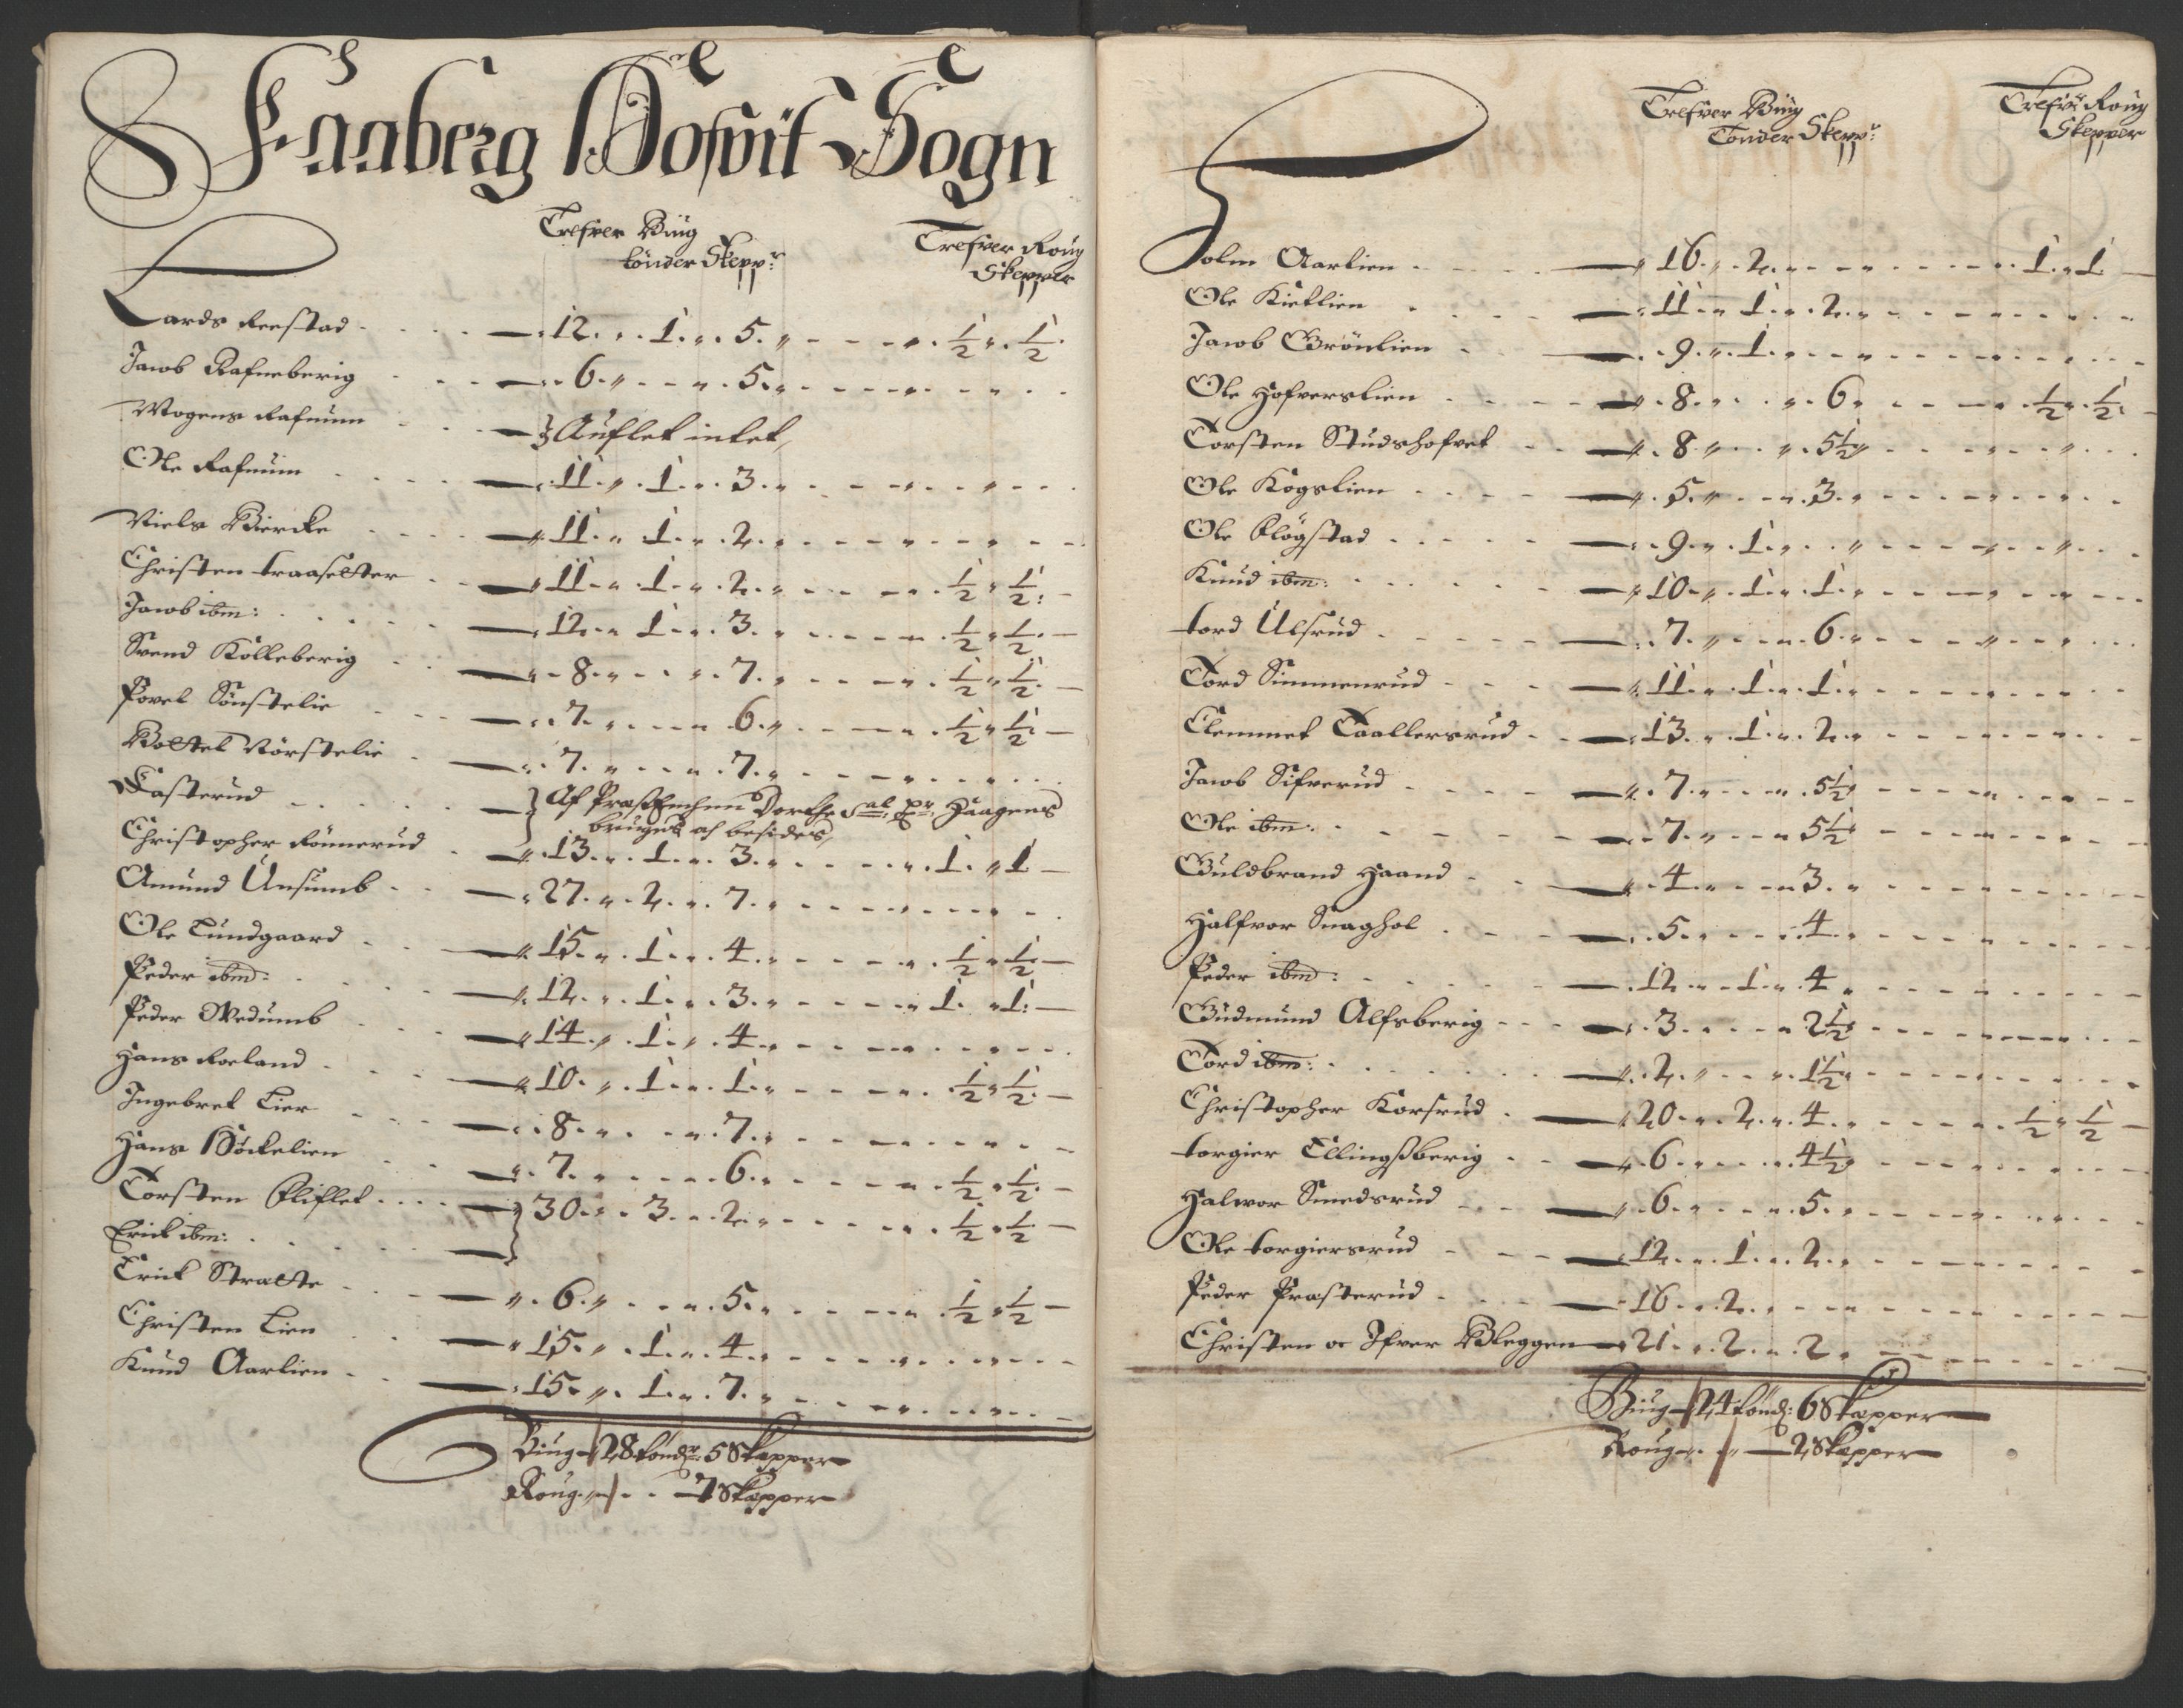 Faaberg Hofvit Sogn
Trefver Biug
tönder Skepp:
Trefver Roug
Skepper
Lards Reestad - 12 - 1 - 5 - 1/2 - 1/2
Jacob Rafneberig - 6 - 5
Mogens Rafnum - Aufled intet,
Ole Rafnum - 11 - 1 - 3
Niels Biercke - 11 - 1 - 2
Christen traasetter - 11 - 1 - 2 - 1/2 - 1/2
Jacob ibm: - 12 - 1 - 3 - 1/2 - 1/2
Svend Kolleberig - 8 - 7 - 1/2 - 1/2
Povel Sönstelie - 7 - 6 - 1/2 - 1/2
Bottel Nörstelie - 7 - 7
Fasterud - Af Dorthe Sal: Hr: Haagens
bruges oc besides,
Christopher Rönnerud - 13 - 1 - 3 - 1 - 1
Amund Unsumb - 27 - 2 - 7
Ole Lundgaard - 15 - 1 - 4 - 1/2 - 1/2
Peder ibm: - 12 - 1 - 3 - 1 - 1
Peder Wedumb - 14 - 1 - 4
Hans Roeland - 10 - 1 - 1 - 1/2 - 1/2
Ingebret Lier - 8 - 7
Hans Böckelien - 7 - 6 - 1/2 - 1/2
Torsten Fliflet - 30 - 3 - 2 - 1/2 - 1/2
Erick ibm:
Erick Strætte - 6 - 5 - 1/2 - 1/2
Christen Lien - 15 - 1 - 4
Knud Aarlien - 15 - 1 - 7
Biug - 28 tönd: 5 Skepper
Roug - 7 Skepper
Trefver Biug
Tönder Skepp:
Trefver Roug
Skepper
Holm Aarlien - 16 - 2 - 1 - 1
Ole Kietlien - 11 - 1 - 2
Jacob Grönlien - 9 - 1
Ole Hofverslien - 8 - 6 - 1/2 - 1/2
Torsten Studshofvet - 8 - 5 1/2
Ole Kogslien - 5 - 3
Ole Flögstad - 9 - 1
Knud ibm: - 10 - 1 - 1
tord Ulsrud - 7 - 6
Tord Simmenrud - 11 - 1 - 1
Clemmet Taallersrud - 13 - 1 - 2
Jacob Sifverud - 7 - 5 1/2
Ole ibm: - 7 - 5 1/2
Guldbrand Haand - 4 - 3
Halfvor Snaghol - 5 - 4
Peder ibm: - 12 - 1 - 4
Gudmund Alfsberig - 3 - 2 1/2
Tord ibm: - 2 - 1 1/2
Christopher Korsrud - 20 - 2 - 4 - 1/2 - 1/2
torgier Ellingsberig - 6 - 4 1/2
Halvor Smedsrud - 6 - 5
Ole torgiersrud - 12 - 1 - 2
Peder Præsterud - 16 - 2
Christen oc Ifver Bleggen - 21 - 2 - 2
Biug - 24 tönd: 6 Skepper
Roug - 2 Skepper